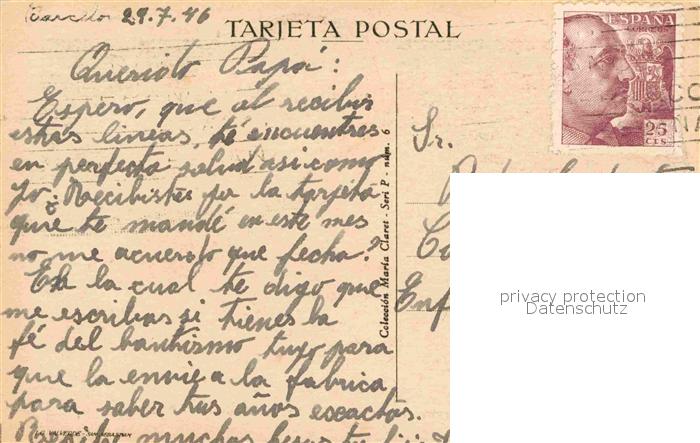 Barcelo 29.7.46
TARJETA POSTAL
ESPAÑA
CORREOS
25
CTS
Querioto Papá:
Espero, que al recibir
estas lineas, te encuentres
en perfecta salud asi como
yo. ¿Recibistes ya la tarjeta
que te mandé en este mes
no me acuerdo que fecha?
En la cual te digo que
me escribas si tienes la
fé del bautismo tuyo para
que la envie a la fabrica
para saber tus años exactos.
Recibe muchos besos tu
Sr.
Colección Maria Claret - Seri P - núm. 6
privacy protection
Datenschutz
LIT. VALVERDE - SAN SEBASTIAN